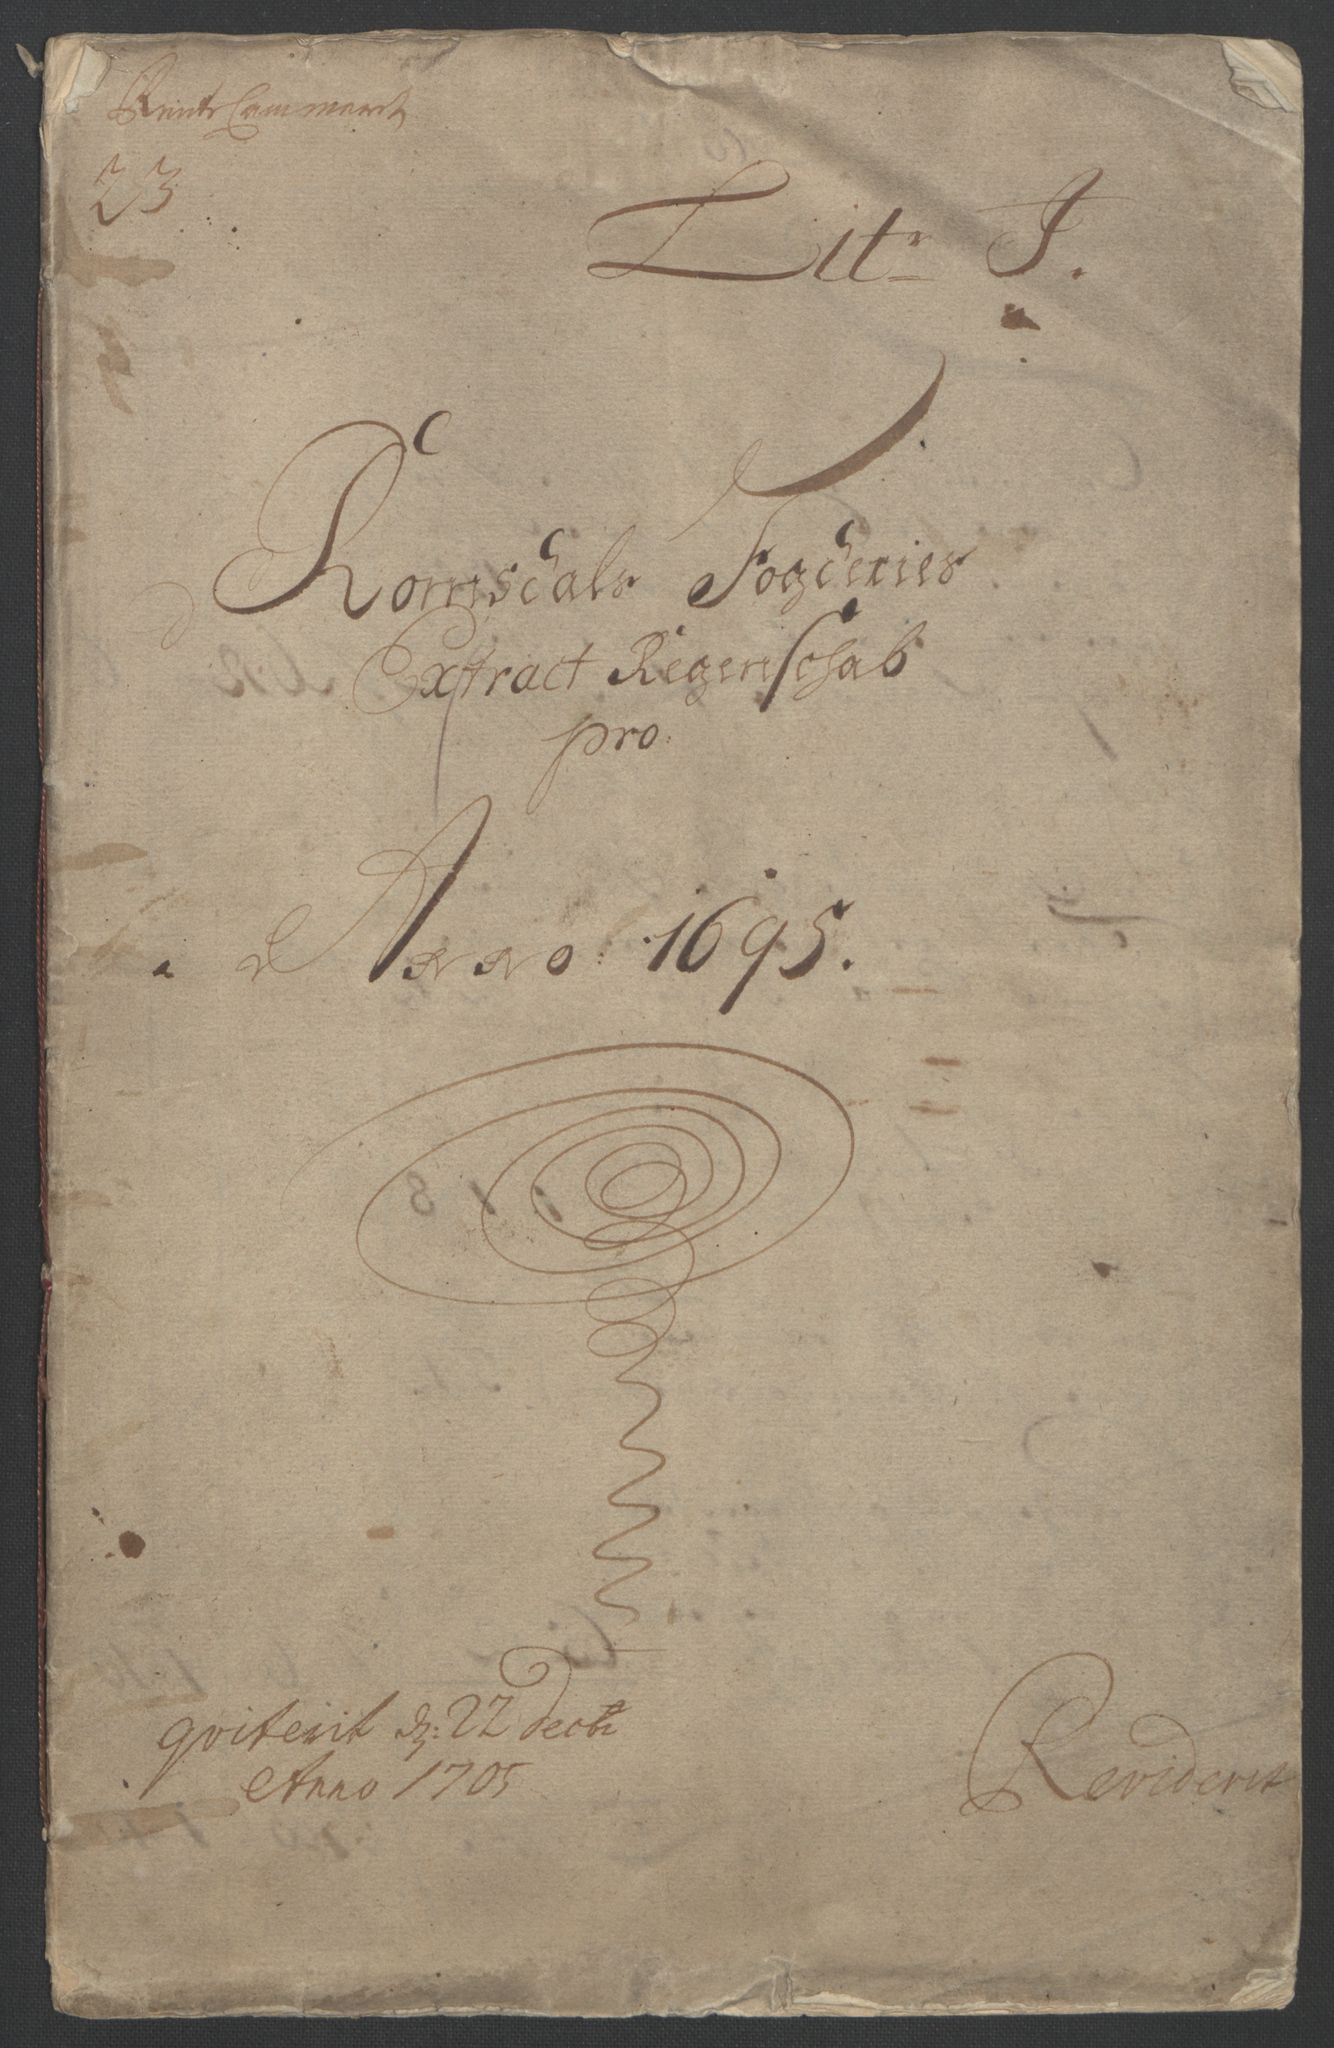 Rente Cammeret
23
Litr J.
Romsdals Fogderies
Extract Regenschab
pro
Anno 1695.
qviterit d: 22 decbr
Anno 1705
Reviderit